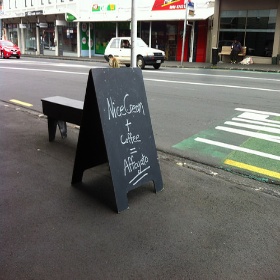 NiceCream
+
Coffee
=
Affogato